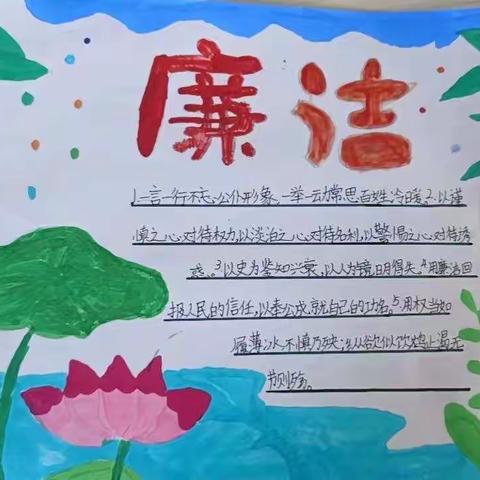 廉洁
1.一言一行不忘公仆形象,一举一动常思百姓冷暖。2.以谨
慎之心对待权力,以淡泊之心对待名利,以警惕之心对待诱
惑。3.以史为鉴知兴衰,以人为镜明得失。4.用廉洁回
报人民的信任,以奉公成就自己的功名。5.用权当如
履薄冰,不慎乃殃;纵欲似饮鸩止渴,无
节则殇。